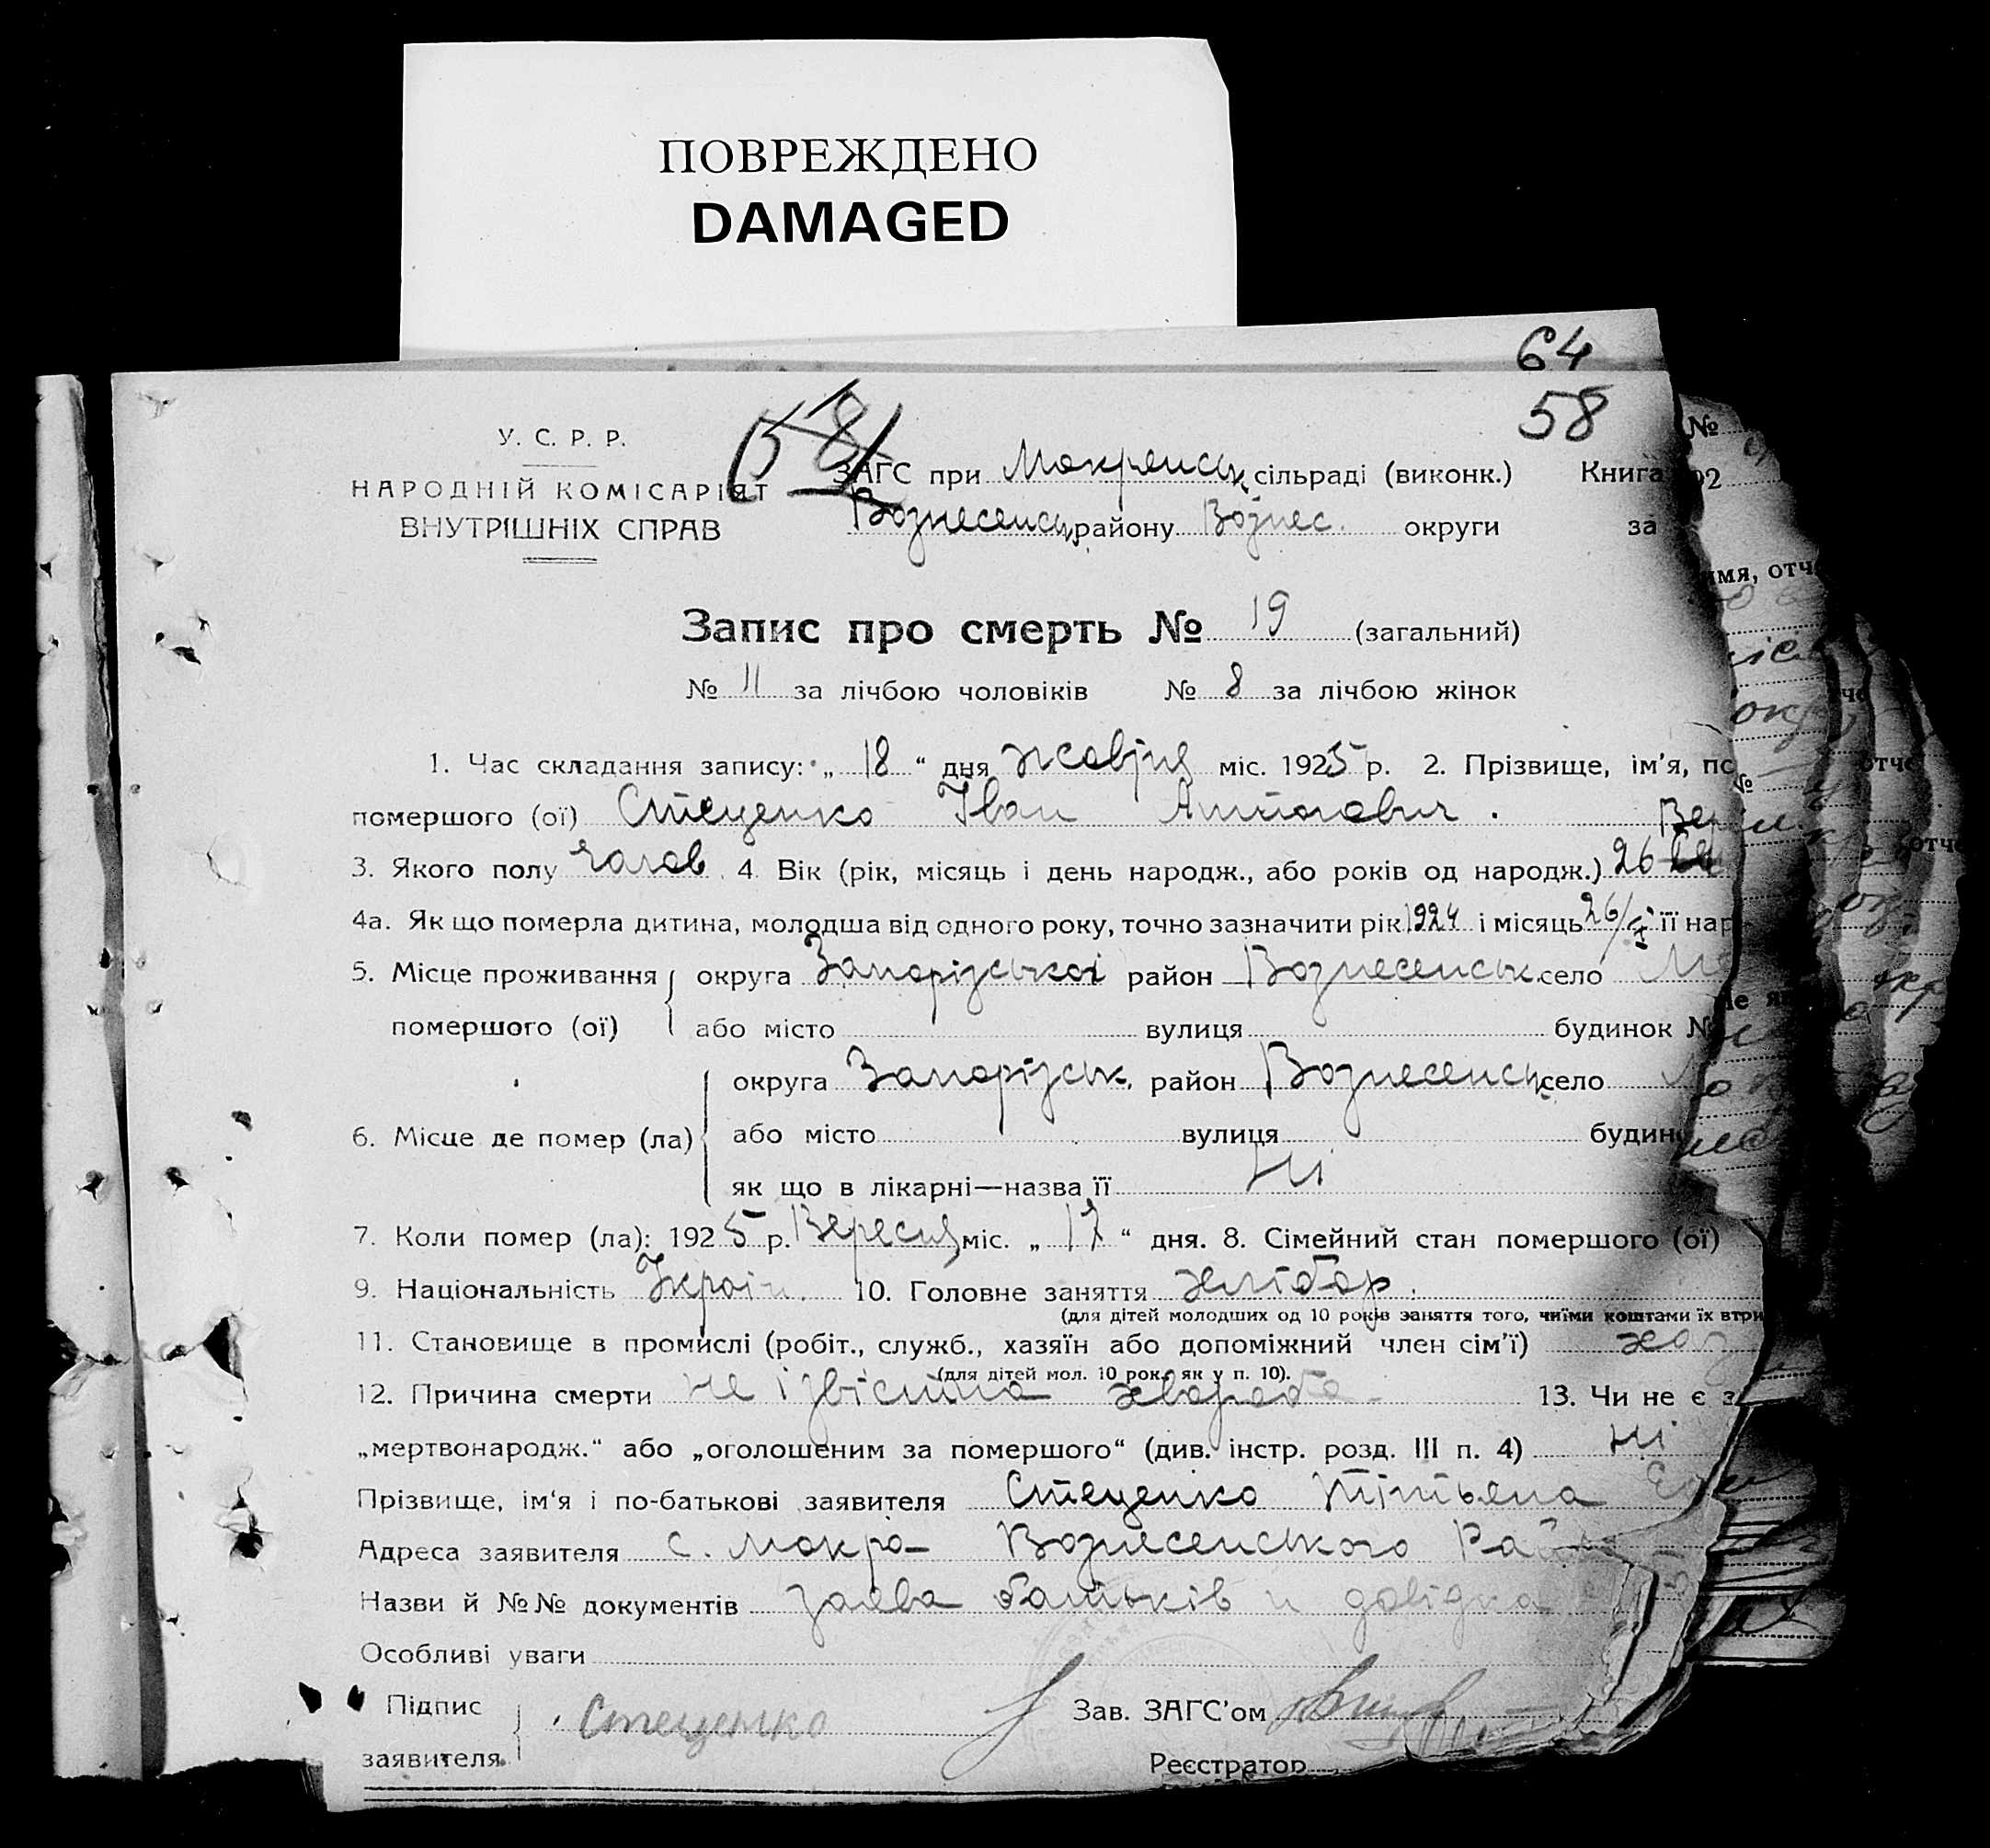 ПОВРЕЖДЕНО
DAMAGED
64
58
58
У. С. Р. Р.
НАРОДНІЙ КОМІСАРІЯТ
ВНУТРІШНІХ СПРАВ
ЗАГС при Мокрянськ сільраді (виконк.) Книга
Вознесенськ району Вознес. округи за
Запис про смерть № 19 (загальний)
№ 11 за лічбою чоловіків № 8 за лічбою жінок
1. Час складання запису: „ 18 “ дня жовтня міс. 1925 р. 2. Прізвище, ім'я, по
помершого (ої) Стеценко Іван Антонович.
3. Якого полу чолов. 4. Вік (рік, місяць і день народж., або років од народж.) 26
4а. Як що померла дитина, молодша від одного року, точно зазначити рік 1924 і місяць 26/ її нар
5. Місце проживання округа Запорізської район Вознесенськ. село
помершого (ої) або місто вулиця будинок №
округа Запорізськ. район Вознесенськ село
6. Місце де помер (ла) або місто вулиця будин
як що в лікарні—назва її Ні
7. Коли помер (ла): 1925 р. Вересня міс. „ 17 “ дня. 8. Сімейний стан помершого (ої)
9. Національність Україн. 10. Головне заняття хлібор.
(для дітей молодших од 10 років заняття того, чиїми коштами їх втри
11. Становище в промислі (робіт., служб., хазяїн або допоміжний член сім'ї) хаз
(для дітей мол. 10 рок. як у п. 10).
12. Причина смерти не ізвістна хвороба 13. Чи не є з
„мертвонародж.“ або „оголошеним за помершого“ (див. інстр. розд. III п. 4) ні
Прізвище, ім'я і по-батькові заявителя Стеценко Тітьяна
Адреса заявителя с. Мокра Вознесенського Рай
Назви й №№ документів заява батьків и довідка
Особливі уваги
Підпис
заявителя Стеценко
Зав. ЗАГС'ом
Реєстратор